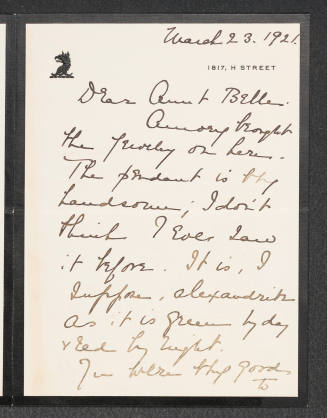 March 23. 1921.
1817, H STREET
Dear Aunt Belle.
Amory brought
the jewelry on here.
The pendant is
handsome; I don't
think I ever saw
it before. It is, I
suppose, alexandrite
as it is green by day
& red by night.
You were good
to